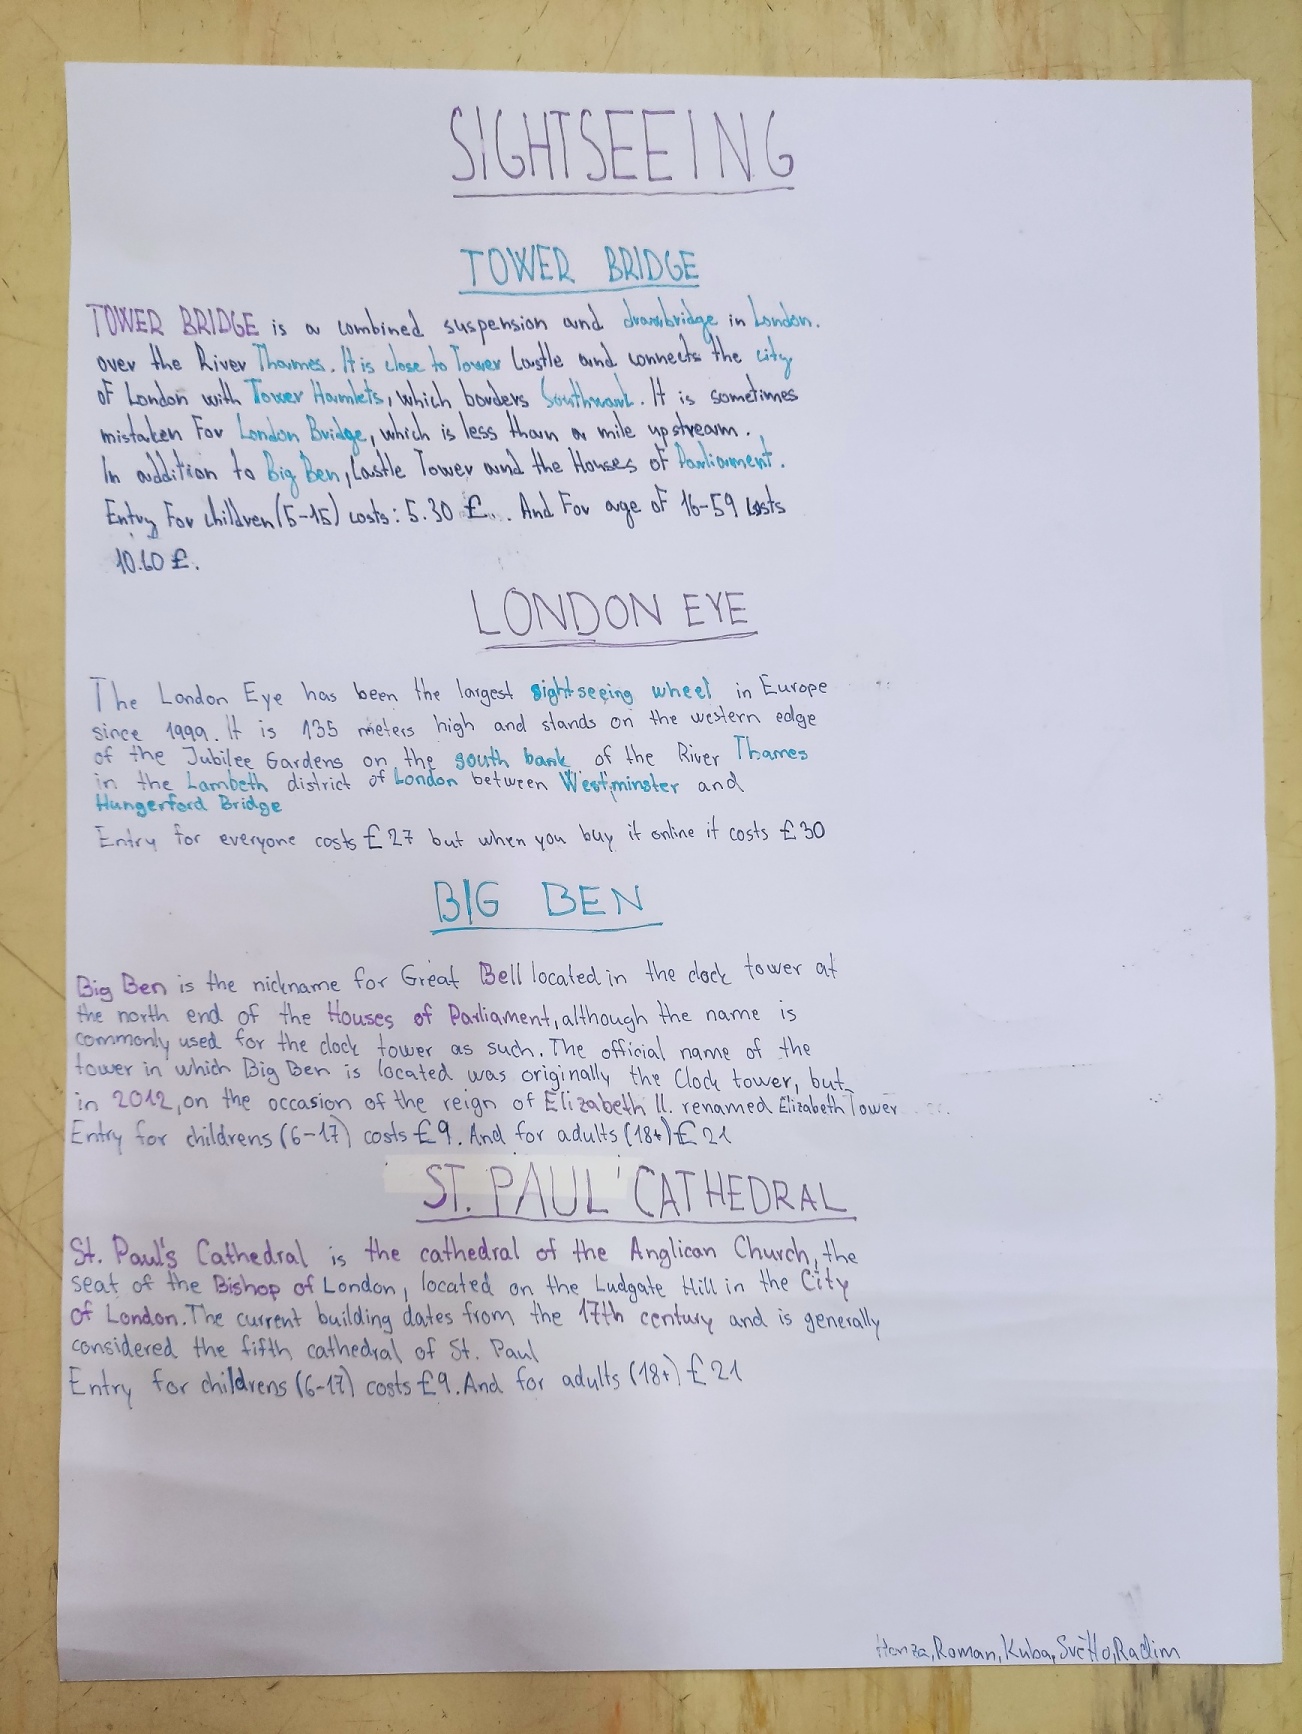 SIGHTSEEING
TOWER BRIDGE
TOWER BRIDGE is a combined suspension and drawbridge in London.
over the River Thames. It is close to Tower Castle and connects the city
of London with Tower Hamlets, which borders Southwark. It is sometimes
mistaken For London Bridge, which is less than a mile upstream.
In addition to Big Ben, Castle Tower and the Houses of Parliament.
Entry For children (5-15) costs: 5.30 £... And For age of 16-59 costs
10.60 £.
LONDON EYE
The London Eye has been the largest sightseeing wheel in Europe
since 1999. It is 135 meters high and stands on the western edge
of the Jubilee Gardens on the south bank of the River Thames
in the Lambeth district of London between Westminster and
Hungerford Bridge
Entry for everyone costs £27 but when you buy it online it costs £30
BIG BEN
Big Ben is the nickname for Great Bell located in the clock tower at
the north end of the Houses of Parliament, although the name is
commonly used for the clock tower as such. The official name of the
tower in which Big Ben is located was originally the Clock tower, but
in 2012, on the occasion of the reign of Elizabeth II. renamed Elizabeth Tower
Entry for childrens (6-17) costs £9. And for adults (18+) £21
ST. PAUL' CATHEDRAL
St. Paul's Cathedral is the cathedral of the Anglican Church, the
seat of the Bishop of London, located on the Ludgate Hill in the City
of London. The current building dates from the 17th century and is generally
considered the fifth cathedral of St. Paul
Entry for childrens (6-17) costs £9. And for adults (18+) £21
Honza, Roman, Kuba, Radim